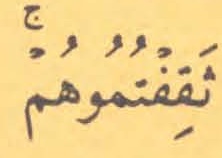 ثَقِفْتُمُوهُمْۚ